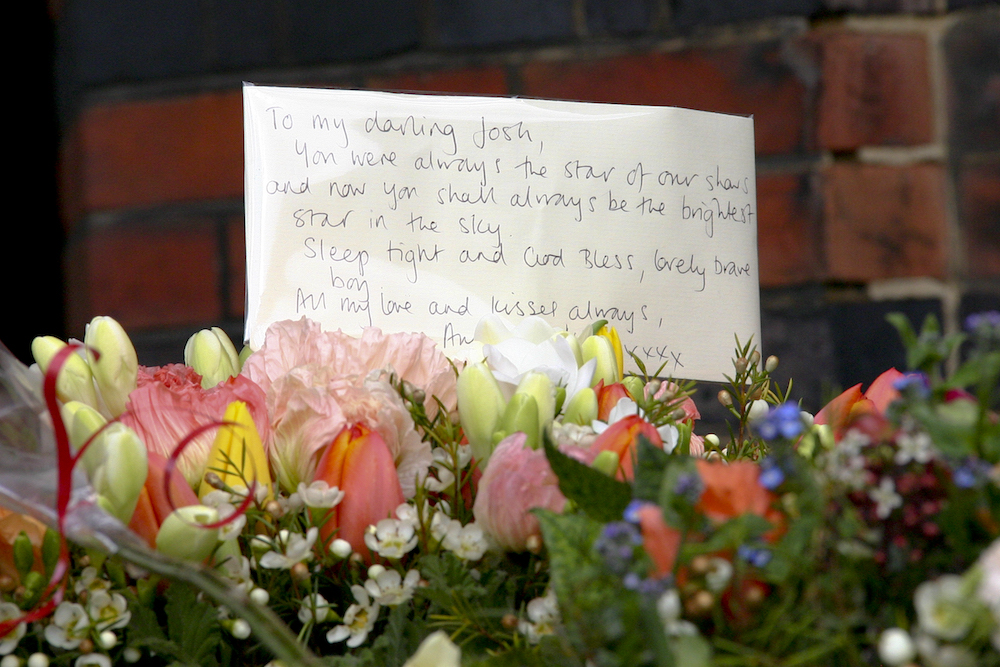 To my darling Josh,
You were always the star of our shows
and now you shall always be the brightest
star in the sky.
Sleep tight and God Bless, lovely brave
boy
All my love and kisses always,
xxxx